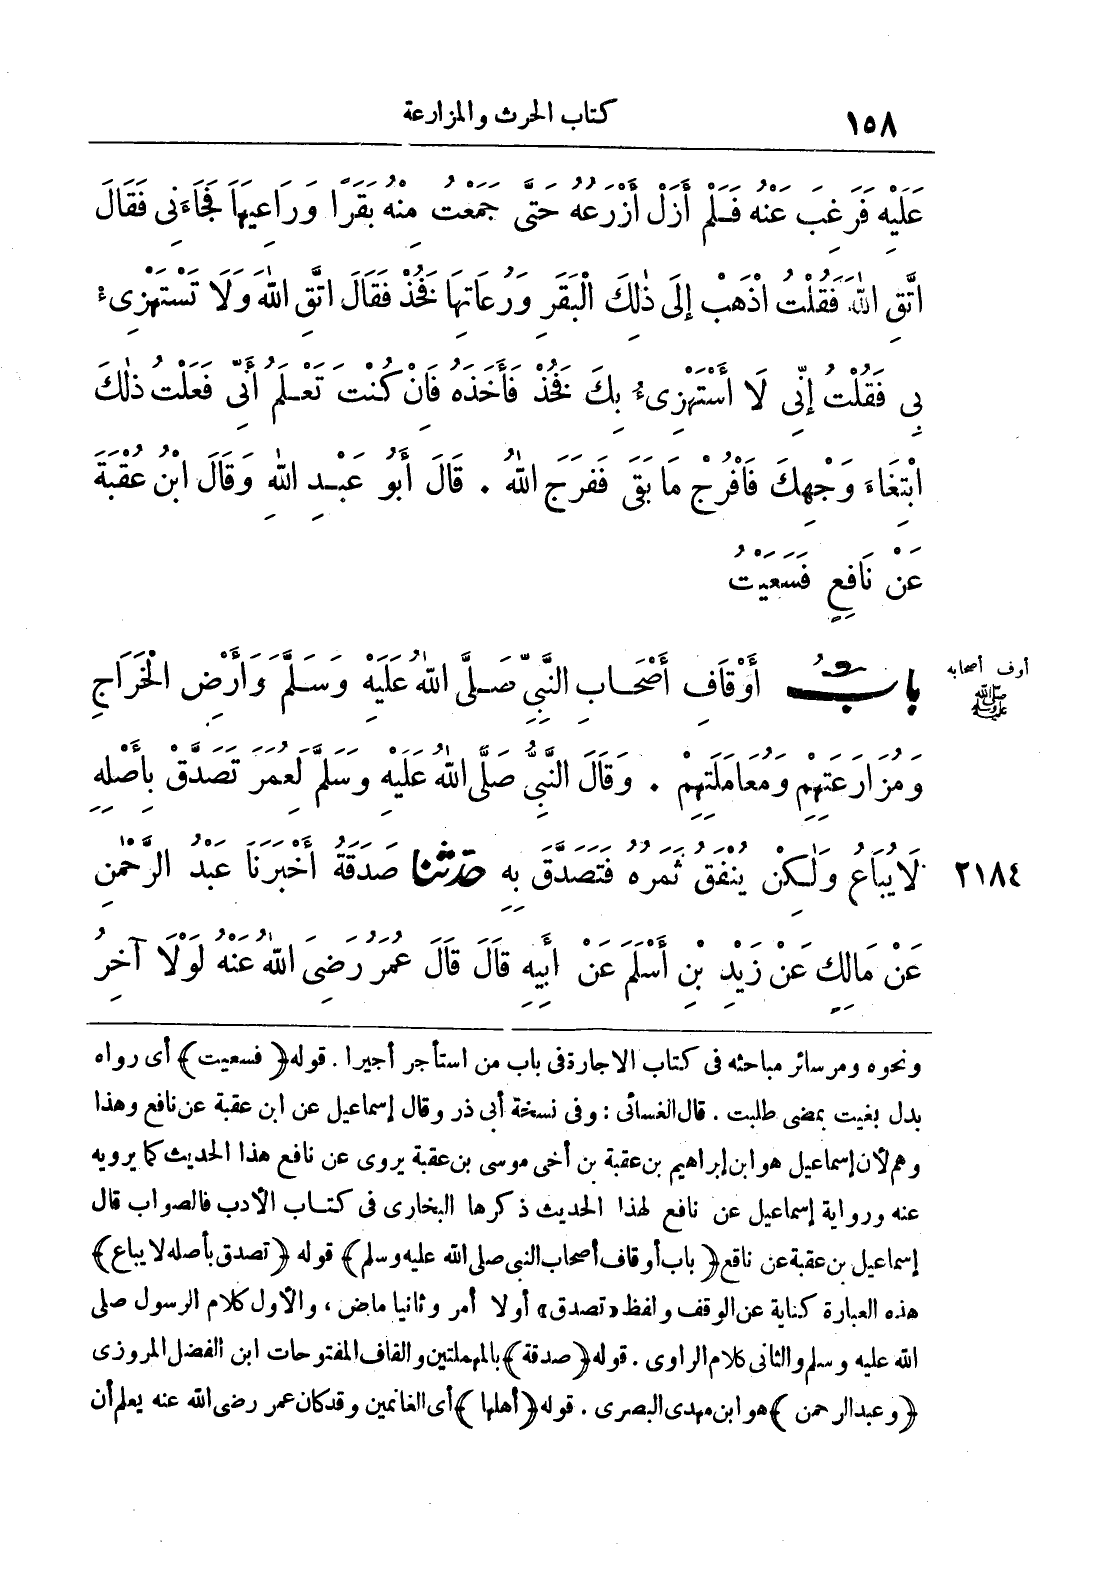 ١٥٨
كتاب الحرث والمزارعة
عَلَيْهِ فَرَغِبَ عَنْهُ فَلَمْ أَزَلْ أَزْرَعُهُ حَتَّى جَمَعْتُ مِنْهُ بَقَرًا وَرَاعِيَهَا فَجَاءَنِى فَقَالَ
اتَّقِ اللّٰهَ فَقُلْتُ اذْهَبْ إِلَى ذٰلِكَ الْبَقَرِ وَرُعَاتِهَا فَخُذْ فَقَالَ اتَّقِ اللّٰهَ وَلَا تَسْتَهْزِىءْ
بِى فَقُلْتُ إِنِّى لَا أَسْتَهْزِىءُ بِكَ فَخُذْ فَأَخَذَهُ فَإِنْ كُنْتَ تَعْلَمُ أَنِّى فَعَلْتُ ذٰلِكَ
ابْتِغَاءَ وَجْهِكَ فَافْرُجْ مَا بَقِىَ فَفَرَجَ اللّٰهُ . قَالَ أَبُو عَبْدِ اللّٰهِ وَقَالَ ابْنُ عُقْبَةَ
عَنْ نَافِعٍ فَسَعَيْتُ
بابُ أَوْقَافِ أَصْحَابِ النَّبِىِّ صَلَّى اللّٰهُ عَلَيْهِ وَسَلَّمَ وَأَرْضِ الْخَرَاجِ
أوف أصحابه ﷺ
وَمُزَارَعَتِهِمْ وَمُعَامَلَتِهِمْ . وَقَالَ النَّبِىُّ صَلَّى اللّٰهُ عَلَيْهِ وَسَلَّمَ لِعُمَرَ تَصَدَّقْ بِأَصْلِهِ
٢١٨٤ لَا يُبَاعُ وَلٰكِنْ يُنْفَقُ ثَمَرُهُ فَتَصَدَّقَ بِهِ حَدَّثَنَا صَدَقَةُ أَخْبَرَنَا عَبْدُ الرَّحْمٰنِ
عَنْ مَالِكٍ عَنْ زَيْدِ بْنِ أَسْلَمَ عَنْ أَبِيهِ قَالَ قَالَ عُمَرُ رَضِىَ اللّٰهُ عَنْهُ لَوْلَا آخِرُ
ونحوه ومر سائر مباحثه فى كتاب الاجارة فى باب من استأجر أجيرا . قوله ﴿فسعيت﴾ أى رواه
بدل بغيت بمضى طلبت . قال الغسائى : وفى نسخة أبى ذر وقال إسماعيل عن ابن عقبة عن نافع وهذا
وهم لأن إسماعيل هو ابن إبراهيم بن عقبة بن أخى موسى بن عقبة يروى عن نافع هذا الحديث كما يرويه
عنه ورواية إسماعيل عن نافع لهذا الحديث ذكرها البخارى فى كتاب الأدب فالصواب قال
إسماعيل بن عقبة عن نافع ﴿باب أوقاف أصحاب النبى صلى الله عليه وسلم﴾ قوله ﴿تصدق بأصله لا يباع﴾
هذه العبارة كناية عن الوقف ولفظ «تصدق» أولا أمر وثانيا ماض ، والأول كلام الرسول صلى
الله عليه وسلم والثانى كلام الراوى . قوله ﴿صدقة﴾ بالمهملتين والقاف المفتوحات ابن الفضل المروزى
﴿وعبد الرحمن﴾ هو ابن مهدى البصرى . قوله ﴿أهلها﴾ أى الغانمين وقد كان عمر رضى الله عنه يعلم أن